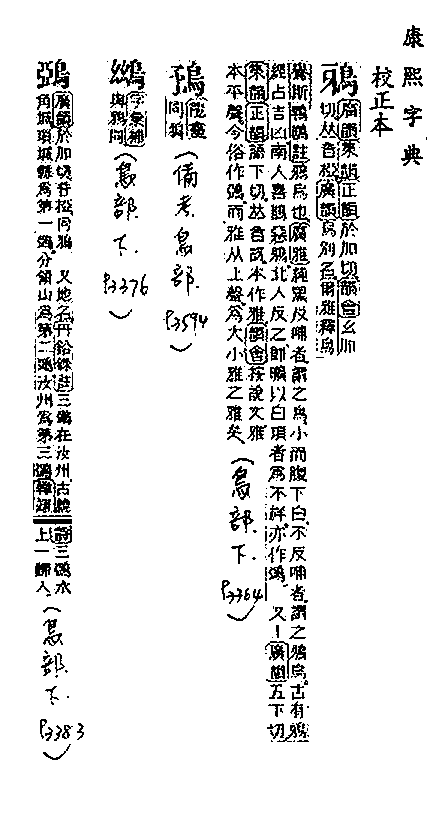 康熙字典
校正本
鴉 廣韻集韻正韻於加切韻會幺加
切𠀤音椏廣韻烏別名爾雅釋鳥
鸒斯鵯鶋註鴉烏也廣雅純黑反哺者謂之烏小而腹下白不反哺者謂之鴉烏古有鴉
經占吉凶南人喜鵲惡鴉北人反之師曠以白項者爲不祥亦作鵶 又廣韻五下切
集韻正韻語下切𠀤音訝本作雅韻會按說文雅
本平聲今俗作鴉而雅从上聲爲大小雅之雅矣
(鳥部下P3364)
龍龕
同鴉
(備考鳥部P3594)
字彙補
與鴉同
(鳥部下P3376)
鵶 廣韻於加切音椏同鴉 又地名丹鉛錄註三鵶在汝州古繞
角城項城縣爲第一鵶分領山爲第二鵶汝州爲第三鵶韓翃
詩三鵶水
上一歸人
(鳥部下P3383)